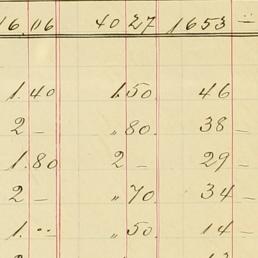 16.06 40 27 1653 =
1.40 1.50. 46
2 – „ 80. 38 –
1.80 2 – 29 –
2 – „ 70. 34 –
1. -- „ 50. 14 –